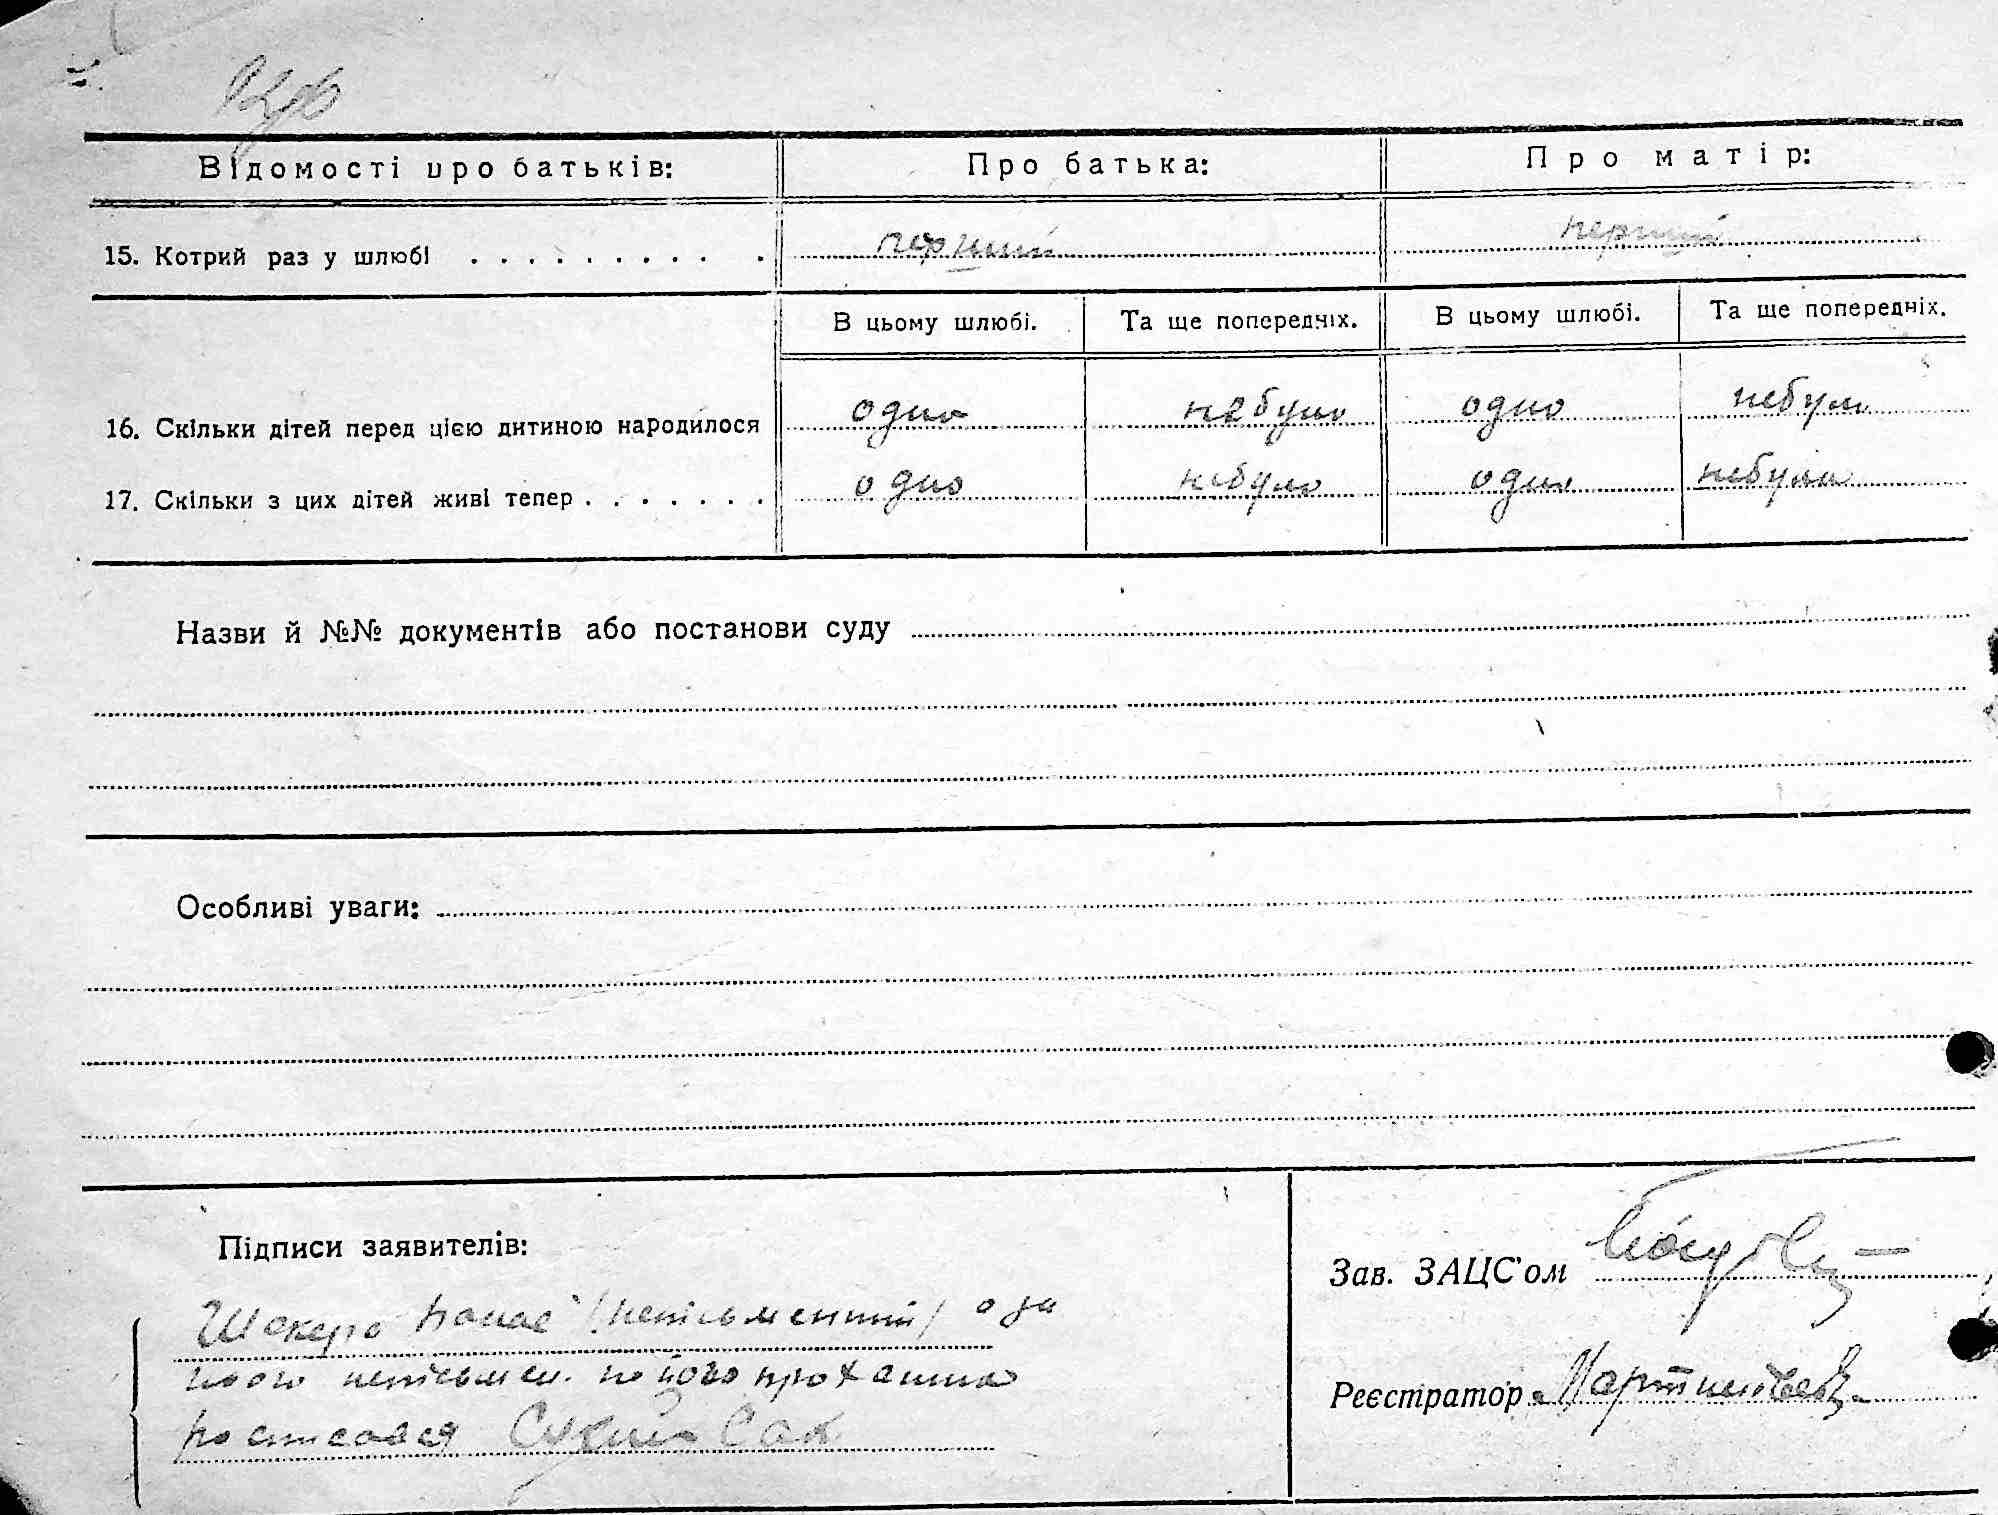 Відомості про батьків: Про батька: Про матір:
15. Котрий раз у шлюбі . . . . . . . . . . . перший перший
В цьому шлюбі. Та ще попередніх. В цьому шлюбі. Та ще попередніх.
16. Скільки дітей перед цією дитиною народилося одно небуло одно небуло
17. Скільки з цих дітей живі тепер . . . . . . . одно небуло одно небуло
Назви й №№ документів або постанови суду
Особливі уваги:
Підписи заявителів:
Зав. ЗАЦС'ом
Шокеро Панас /непісьменний/ о за
його непісьмен. по його прохання
Реєстратор
росписався